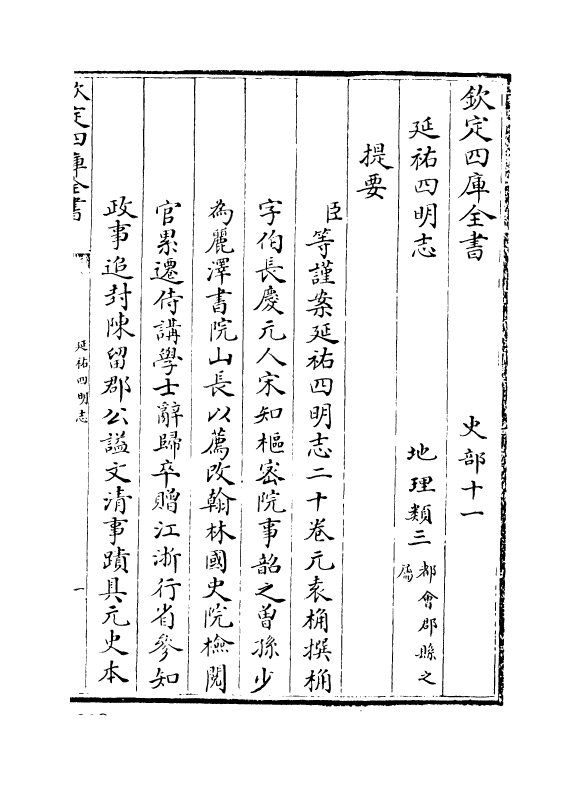 欽定四庫全書　史部十一
延祐四明志　地理類三都會郡縣之屬
提要
臣等謹案延祐四明志二十卷元袁桷撰桷
字伯長慶元人宋知樞密院事韶之曽孫少
為麗澤書院山長以薦改翰林國史院檢閱
官累遷侍講學士辭歸卒贈江浙行省參知
政事追封陳留郡公諡文清事蹟具元史本
欽定四庫全書
延祐四明志
一